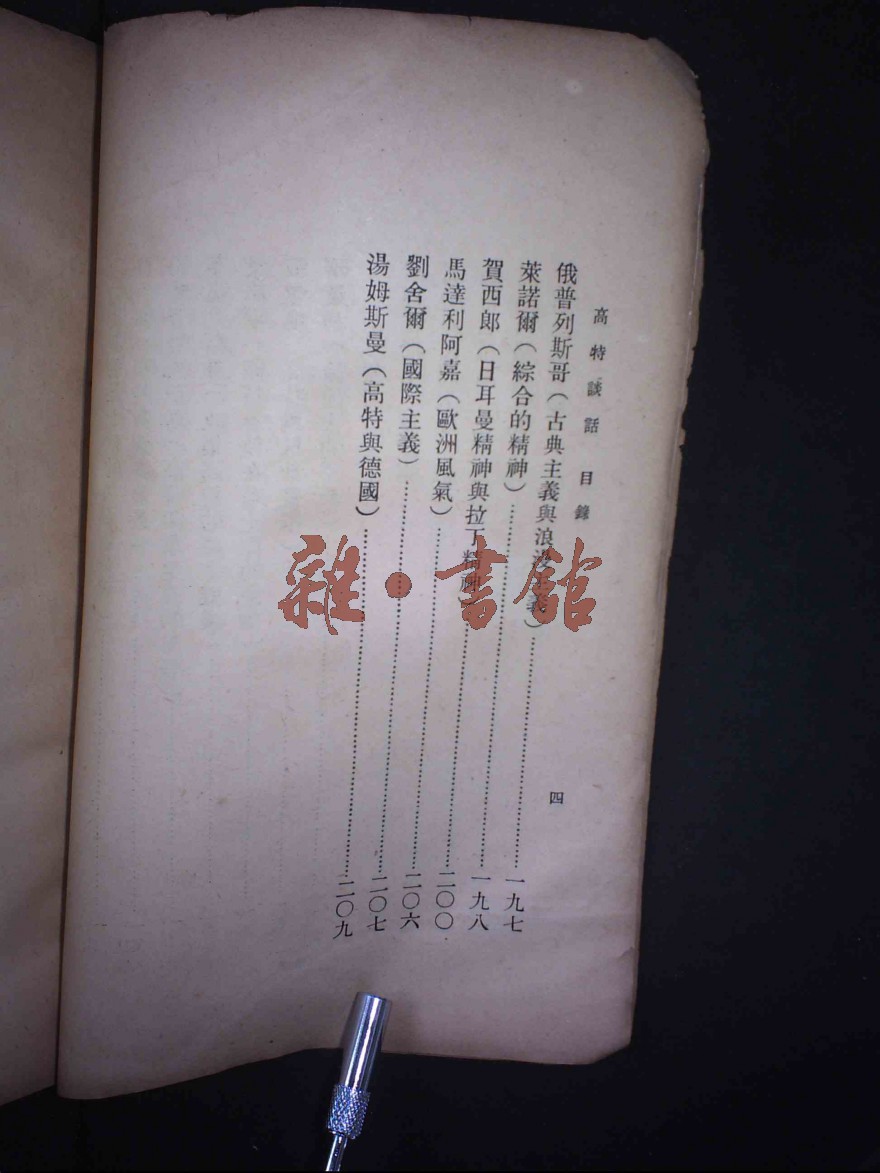 高特談話 目錄 四
俄普列斯哥（古典主義與浪漫主義）……一九七
萊諾爾（綜合的精神）……一九八
賀西郎（日耳曼精神與拉丁精神）……二〇〇
馬達利阿嘉（歐洲風氣）……二〇六
劉舍爾（國際主義）……二〇七
湯姆斯曼（高特與德國）……二〇九
雜·書館